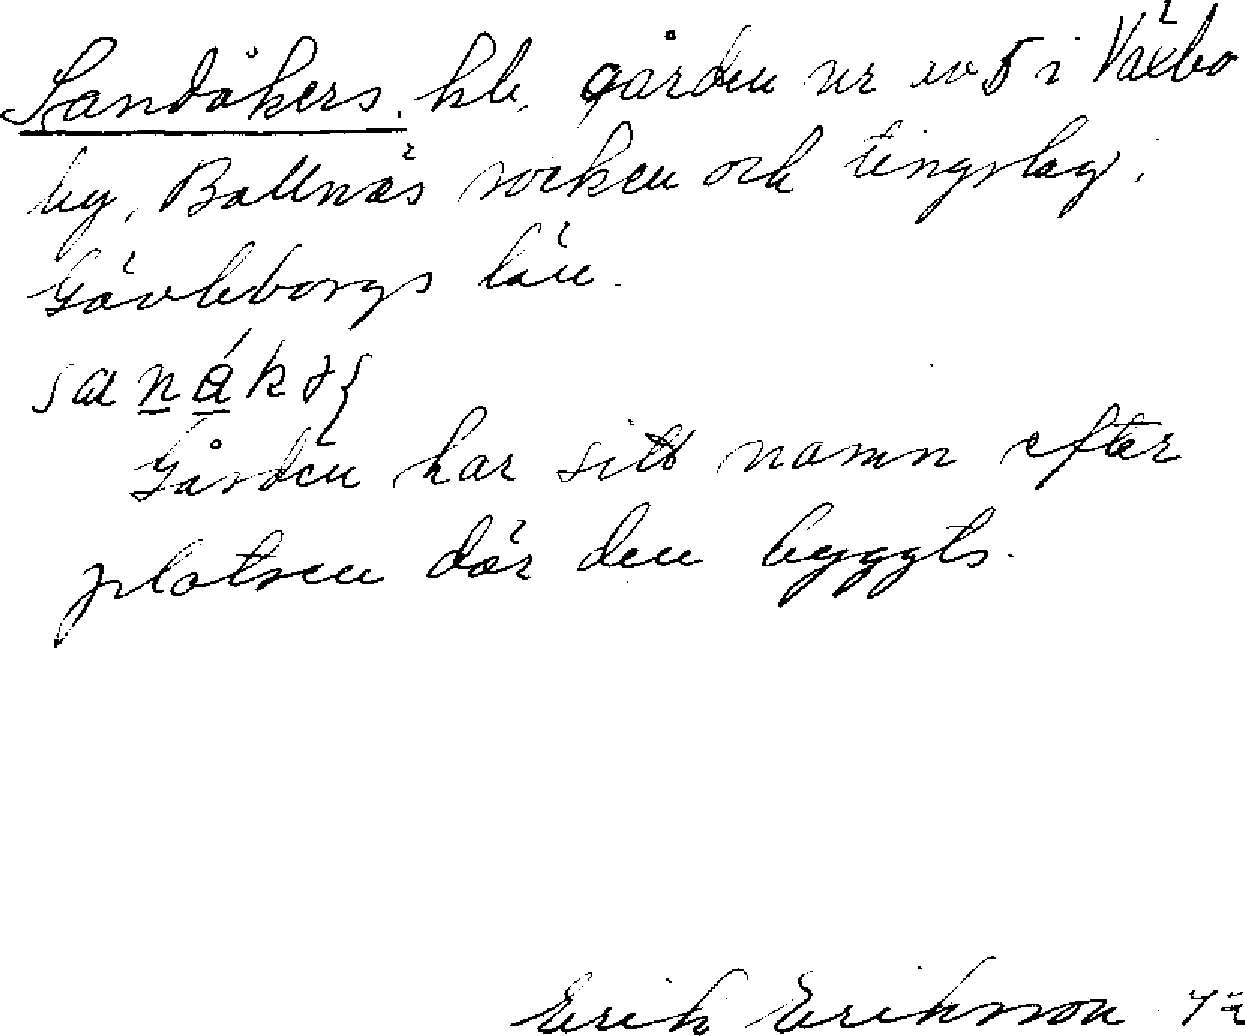 Sandåkers. hb, gården nr ev 5 i Välbo
by, Bollnäs socken och tingslag,
Gävleborgs län.
Gården har sitt namn efter
platsen där den byggts.
Erik Eriksson